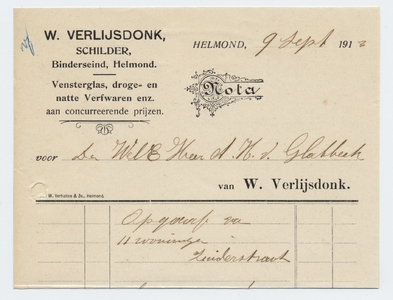 W. VERLIJSDONK,
SCHILDER,
Binderseind, Helmond.
Vensterglas, droge- en
natte Verfwaren enz.
aan concurreerende prijzen.
HELMOND, 9 Sept 191
Nota
voor Den WelE Heer A. H. v. Glabbeek
van W. Verlijsdonk.
W. Verhallen & Zn., Helmond.
Opgaaf van
11 woningen
Zuiderstraat